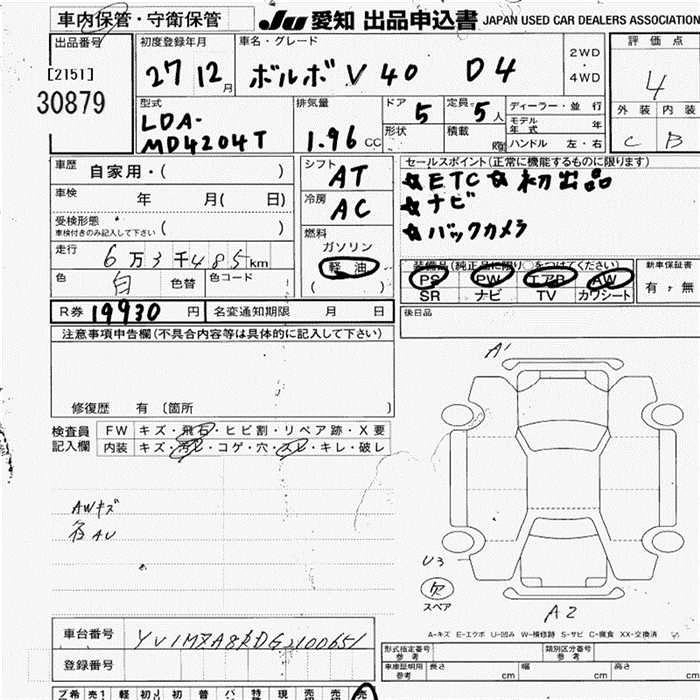 車内保管・守衛保管
Ju 愛知 出品申込書 JAPAN USED CAR DEALERS ASSOCIATION
出品番号
[2151]
30879
初度登録年月
27 12月
車名・グレード
ボルボ V40 D4
2WD
・
4WD
評価点
4
外装 内装
C B
型式
LDA-
MD4204T
排気量
1.96 CC
ドア 5
定員 5人
形状
積載 kg
ディーラー・並行
モデル年式 年
ハンドル 左・右
車歴 自家用・( )
車検 年 月( 日)
受検形態
車検付きのみ記入して下さい ( )
走行 6万3千485km
色 白 色替 色コード
シフト AT
冷房 AC
燃料
ガソリン
軽油
( )
セールスポイント(正常に機能するものに限ります)
☆ETC☆初出品
☆ナビ
☆バックカメラ
装備品(純正品に限り○をつけてください)
PS PW エアB AW
SR ナビ TV カワシート
新車保証書
有・無
R券 19930 円 名変通知期限 月 日
後日品
注意事項申告欄(不具合内容等は具体的に記入して下さい)
修復歴 有 〔箇所 〕
検査員
記入欄
FW キズ・飛石・ヒビ割・リペア跡・X要
内装 キズ・汚レ・コゲ・穴・スレ・キレ・破レ
AWキズ
各AU
A1
U3
欠
スペア
A2
A-キズ E-エクボ U-凹み W-補修跡 S-サビ C-腐食 XX-交換済
車台番号
登録番号
形式指定番号
参考
類別区分番号
参考
車庫証明用
参考
長さ cm 幅 cm 高さ cm